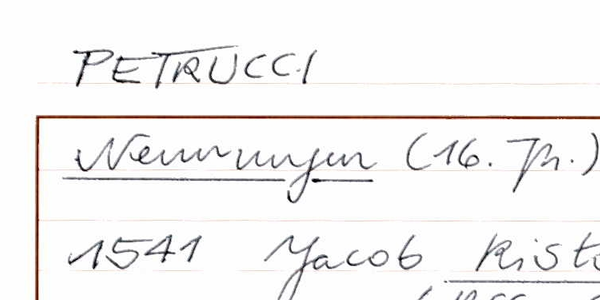 PETRUCCI
Nennungen (16. Jh.)
1541 Jacob